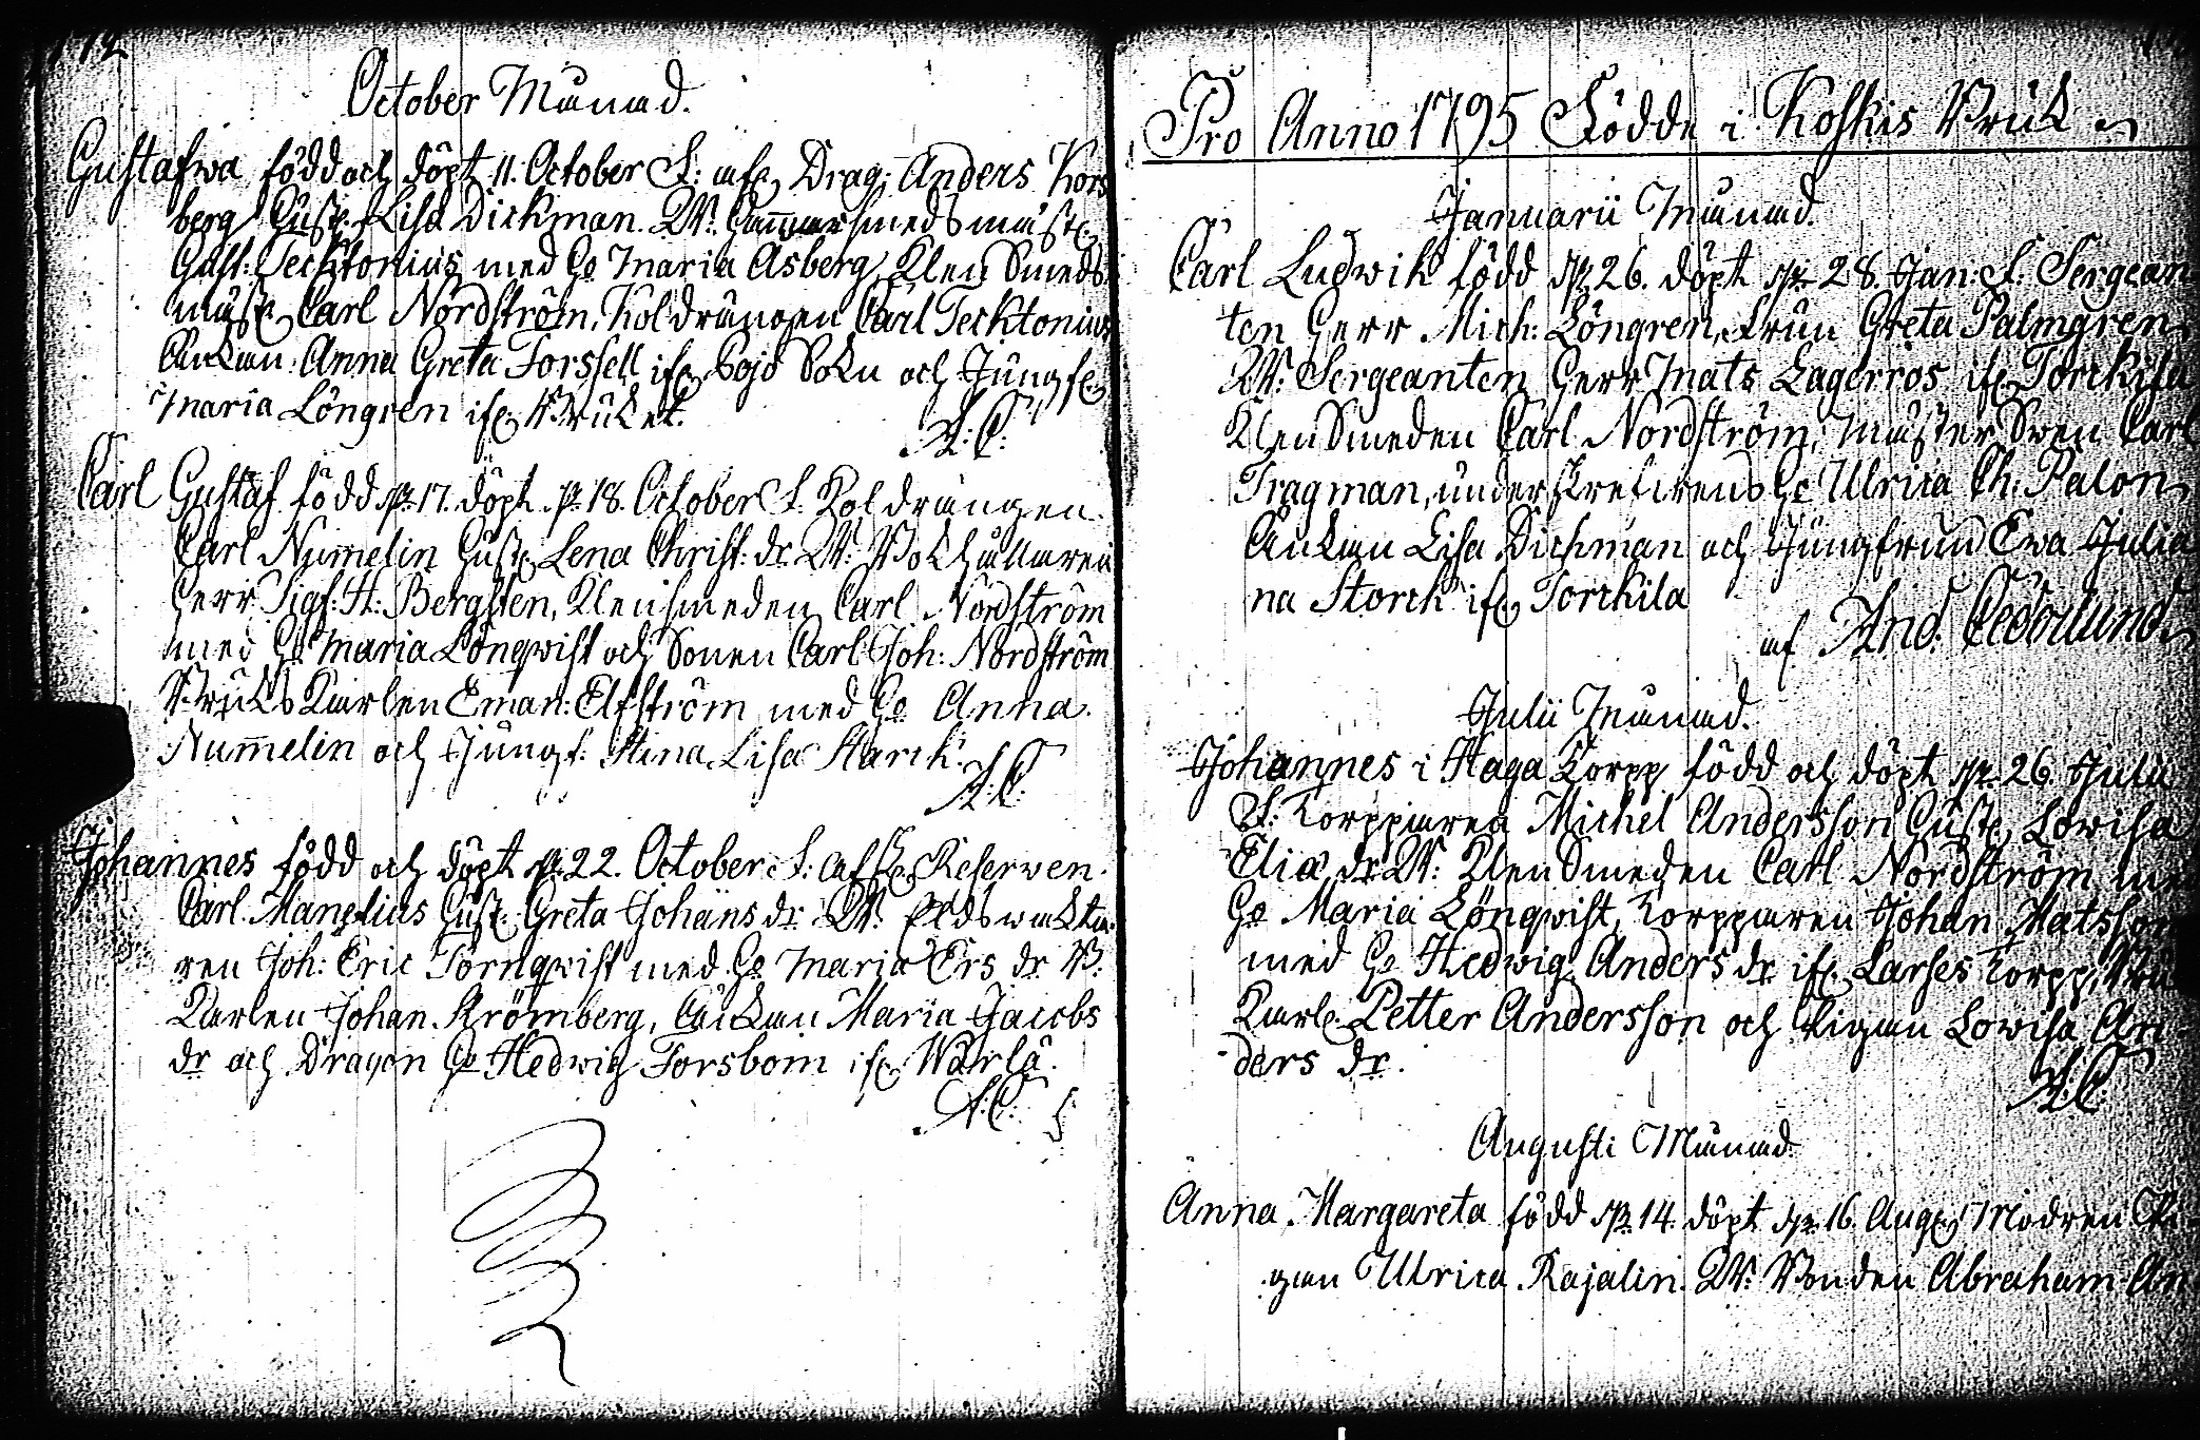 October Månad.
Gustafwa född och döpt 11. October F: afsk. Drag: Anders Kors
berg Hust. Lisa Dickman. W: Hammarsmedsmäst.
Gust: Tecktonius med Ho Maria Asberg, Klen Smeds
mäst. Carl Nordström, Koldrängen Carl Tecktonius
Änkan Anna Greta Forssell ifr. Pojo Sokn och Jungfr.
Maria Löngren ifr. Bruket.
A: C:
Carl Gustaf född d. 17. döpt d. 18. October F. Koldrängen
Carl Numelin Hust. Lena Christ: dr W: Bokhållaren
Herr Sigf: H: Bergsten, Klensmeden Carl Nordström
med Ho Maria Lönqwist och Sonen Carl Joh: Nordström
Bruks Karlen Eman: Elfström med Ho Anna
Numelin och Jungf: Stina Lisa Starck.
A: C:
Johannes född och döpt d. 22. October F: afsk. Reserven
Carl Manelius Hust. Greta Johans dr W: Eldswakta
ren Joh: Eric Törnqwist med Ho Maria Ers dr B:
Karlen Johan Strömberg, Änkan Maria Jacobs
dr och Dragon Ho Hedwig Forsbom ifr. Wärlä.
A: C:
Pro Anno 1795 Födde i Koskis Bruk
Januarii Månad.
Carl Ludwik född d. 26. döpt d. 28. Jan: F: Sergean
ten Herr Mich: Löngren, Frun Greta Palmgren
W: Sergeanten Herr Mats Lagerros ifr. Torckila
Klensmeden Carl Nordström, Mäster Swen Carl
Tragman, under Ho Ulrica Ch: Palon
Änkan Lisa Dickman och Jungfrun Ewa Julia
na Storck ifr. Torckila
af And. Cederlund
Julii Månad.
Johannes i Haga Torpp född och döpt d. 26. Julii
F: Torpparen Michel Andersson Hust. Lowisa
Eliæ dr W: Klen Smeden Carl Nordström me
Ho Maria Lönqwist, Torpparen Johan Matsson
med Ho Hedwig Anders dr ifr. Larses Torpp, Bru
Karl. Petter Andersson och Pigan Lowisa An
ders dr.
A: C:
Augusti Månad
Anna Margareta född d. 14. döpt d. 16. Aug. Modren Pi
gan Ulrica Rajalin. W: Bonden Abraham An